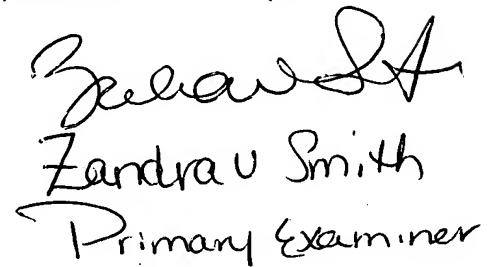 Zandra V Smith
Primary Examiner